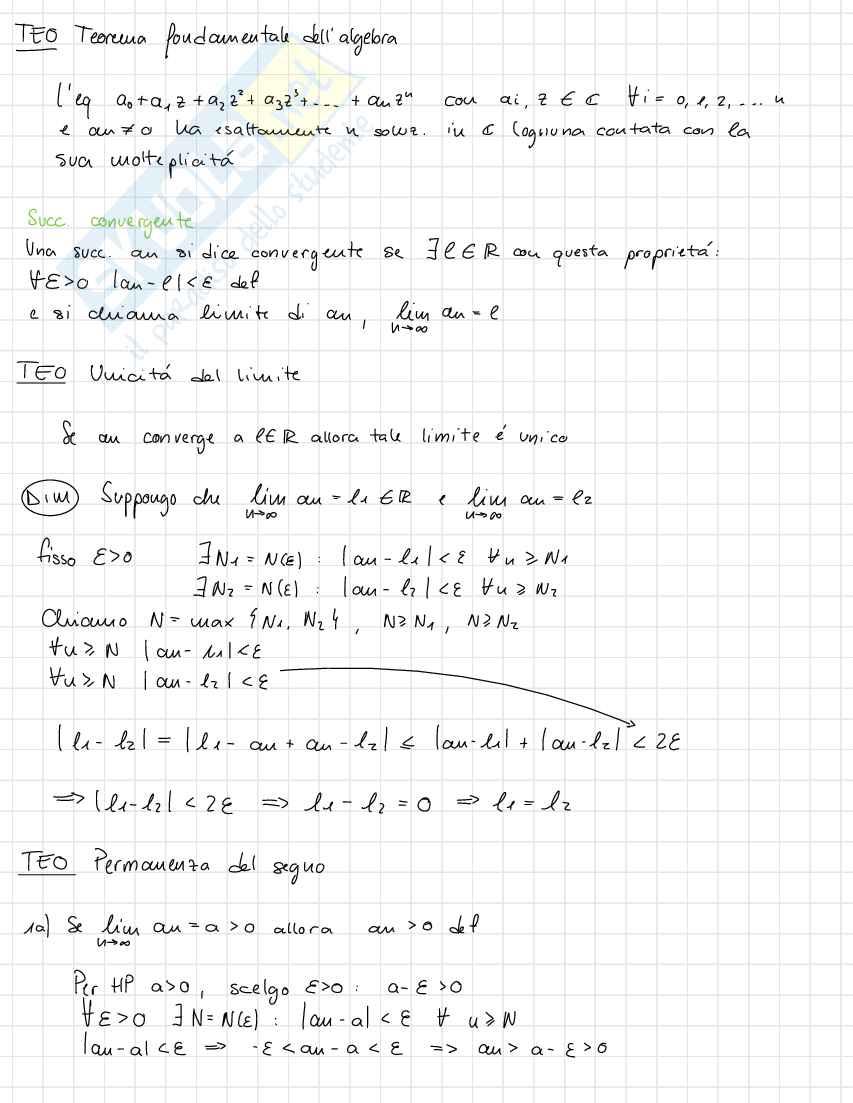 TEO Teorema fondamentale dell'algebra
l'eq a₀+a₁z+a₂z²+a₃z³+....+aₙzⁿ con ai, z ∈ ℂ ∀i = 0, 1, 2, ... n
e an≠0 ha esattamente n soluz. in ℂ (ognuna contata con la
sua molteplicitá
Succ. convergente
Una succ. an si dice convergente se ∃ℓ∈ℝ con questa proprietá:
∀ε>0 |an-ℓ|<ε def
e si chiama limite di an, lim n→∞ an = ℓ
TEO Unicitá del limite
Se an converge a ℓ∈ℝ allora tale limite é unico
Dim Suppongo che lim n→∞ an = ℓ₁ ∈ℝ e lim n→∞ an = ℓ₂
fisso ε>0 ∃N₁ = N(ε) : |an-ℓ₁|<ε ∀n ≥ N₁
∃N₂ = N(ε) : |an-ℓ₂|<ε ∀n ≥ N₂
Chiamo N = max {N₁, N₂}, N≥N₁, N≥N₂
∀n ≥ N |an-ℓ₁|<ε
∀n ≥ N |an-ℓ₂|<ε
|ℓ₁-ℓ₂| = |ℓ₁-an+an-ℓ₂| ≤ |an-ℓ₁| + |an-ℓ₂| < 2ε
⇒ |ℓ₁-ℓ₂| < 2ε ⇒ ℓ₁-ℓ₂ = 0 ⇒ ℓ₁ = ℓ₂
TEO Permanenza del segno
1a) Se lim n→∞ an = a > 0 allora an > 0 def
Per HP a>0, scelgo ε>0 : a-ε>0
∀ε>0 ∃N=N(ε) : |an-a| < ε ∀ n ≥ N
|an-a| < ε ⇒ -ε < an-a < ε ⇒ an > a-ε > 0
SKUOLA.net
il paradiso dello studente